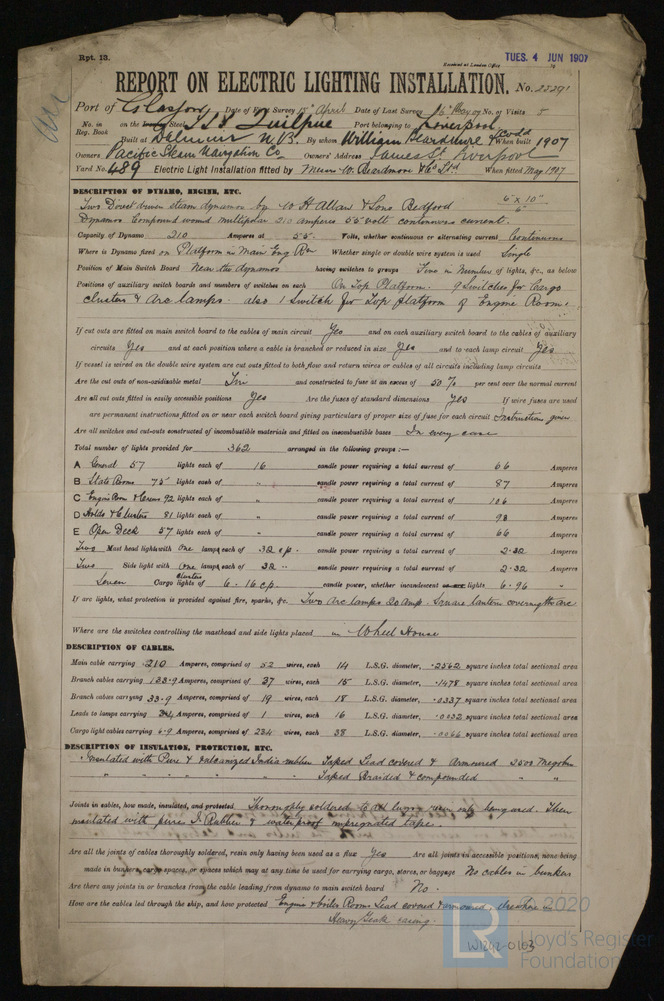 Rpt. 13.
Received at London Office
TUES. 4 JUN 1907
REPORT ON ELECTRIC LIGHTING INSTALLATION. No. 22291
Port of Glasgow Date of First Survey 15th April Date of Last Survey 16th May No. of Visits 8
No. in Reg. Book on the Iron or Steel SS Quilpue Port belonging to Liverpool
Built at Dalmuir N.B. By whom William Beardmore & Co Ltd When built 1907
Owners Pacific Steam Navigation Co Owners' Address James St. Liverpool
Yard No. 489 Electric Light Installation fitted by Messrs W. Beardmore & Co Ltd When fitted May 1907
DESCRIPTION OF DYNAMO, ENGINE, ETC.
Two Direct driven steam dynamos by W H Allan & Sons Bedford 6" x 10" 6"
Dynamos Compound wound multipolar 210 amperes 55 volt continuous current.
Capacity of Dynamo 210 Amperes at 55 Volts, whether continuous or alternating current Continuous
Where is Dynamo fixed on Platform in Main Eng Rm Whether single or double wire system is used Single
Position of Main Switch Board Near the dynamos having switches to groups Five in Number of lights, &c., as below
Positions of auxiliary switch boards and numbers of switches on each On Top Platform. 9 Switches for Cargo
clusters & Arc lamps. also 1 Switch for Top platform of Engine Room.
If cut outs are fitted on main switch board to the cables of main circuit Yes and on each auxiliary switch board to the cables of auxiliary
circuits Yes and at each position where a cable is branched or reduced in size Yes and to each lamp circuit Yes
If vessel is wired on the double wire system are cut outs fitted to both flow and return wires or cables of all circuits including lamp circuits
Are the cut outs of non-oxidizable metal Tin and constructed to fuse at an excess of 50 % per cent over the normal current
Are all cut outs fitted in easily accessible positions Yes Are the fuses of standard dimensions Yes If wire fuses are used
are permanent instructions fitted on or near each switch board giving particulars of proper size of fuse for each circuit Instructions given
Are all switches and cut-outs constructed of incombustible materials and fitted on incombustible bases In every case
Total number of lights provided for 362 arranged in the following groups :—
A General 57 lights each of 16 candle power requiring a total current of 66 Amperes
B State Rooms 75 lights each of " candle power requiring a total current of 87 Amperes
C Engine Room & Crews 92 lights each of " candle power requiring a total current of 106 Amperes
D Holds & Clusters 81 lights each of " candle power requiring a total current of 93 Amperes
E Open Deck 57 lights each of " candle power requiring a total current of 66 Amperes
Two Mast head lights with one lamps each of 32 c.p. candle power requiring a total current of 2.32 Amperes
Two Side light with one lamps each of 32 " candle power requiring a total current of 2.32 Amperes
Seven Cargo lights of clusters 6 . 16 cp. candle power, whether incandescent or arc lights 6.96 "
If arc lights, what protection is provided against fire, sparks, &c. Two Arc lamps 20 amp. Square lantern covering the arc
Where are the switches controlling the masthead and side lights placed in Wheel House
DESCRIPTION OF CABLES.
Main cable carrying 210 Amperes, comprised of 52 wires, each 14 L.S.G. diameter, .2562 square inches total sectional area
Branch cables carrying 133.9 Amperes, comprised of 37 wires, each 15 L.S.G. diameter, .1478 square inches total sectional area
Branch cables carrying 33.9 Amperes, comprised of 19 wires, each 18 L.S.G. diameter, .0337 square inches total sectional area
Leads to lamps carrying Amperes, comprised of 1 wires, each 16 L.S.G. diameter, .0032 square inches total sectional area
Cargo light cables carrying 6.9 Amperes, comprised of 234 wires, each 38 L.S.G. diameter, .0066 square inches total sectional area
DESCRIPTION OF INSULATION, PROTECTION, ETC.
Insulated with Pure & Vulcanized India rubber Taped Lead covered & Armoured 2500 Megohm
" " " " " " Taped Braided & compounded " "
Joints in cables, how made, insulated, and protected Thoroughly soldered resin only being used. Then
insulated with pure I. Rubber & waterproof impregnated tape.
Are all the joints of cables thoroughly soldered, resin only having been used as a flux Yes Are all joints in accessible positions, none being
made in bunkers, cargo spaces, or spaces which may at any time be used for carrying cargo, stores, or baggage No cables in bunkers
Are there any joints in or branches from the cable leading from dynamo to main switch board No.
How are the cables led through the ship, and how protected Engine & boiler Rooms Lead covered & armoured, elsewhere in
Heavy Teak casing.
LR
© 2020
Lloyd's Register
Foundation
W1242-0163